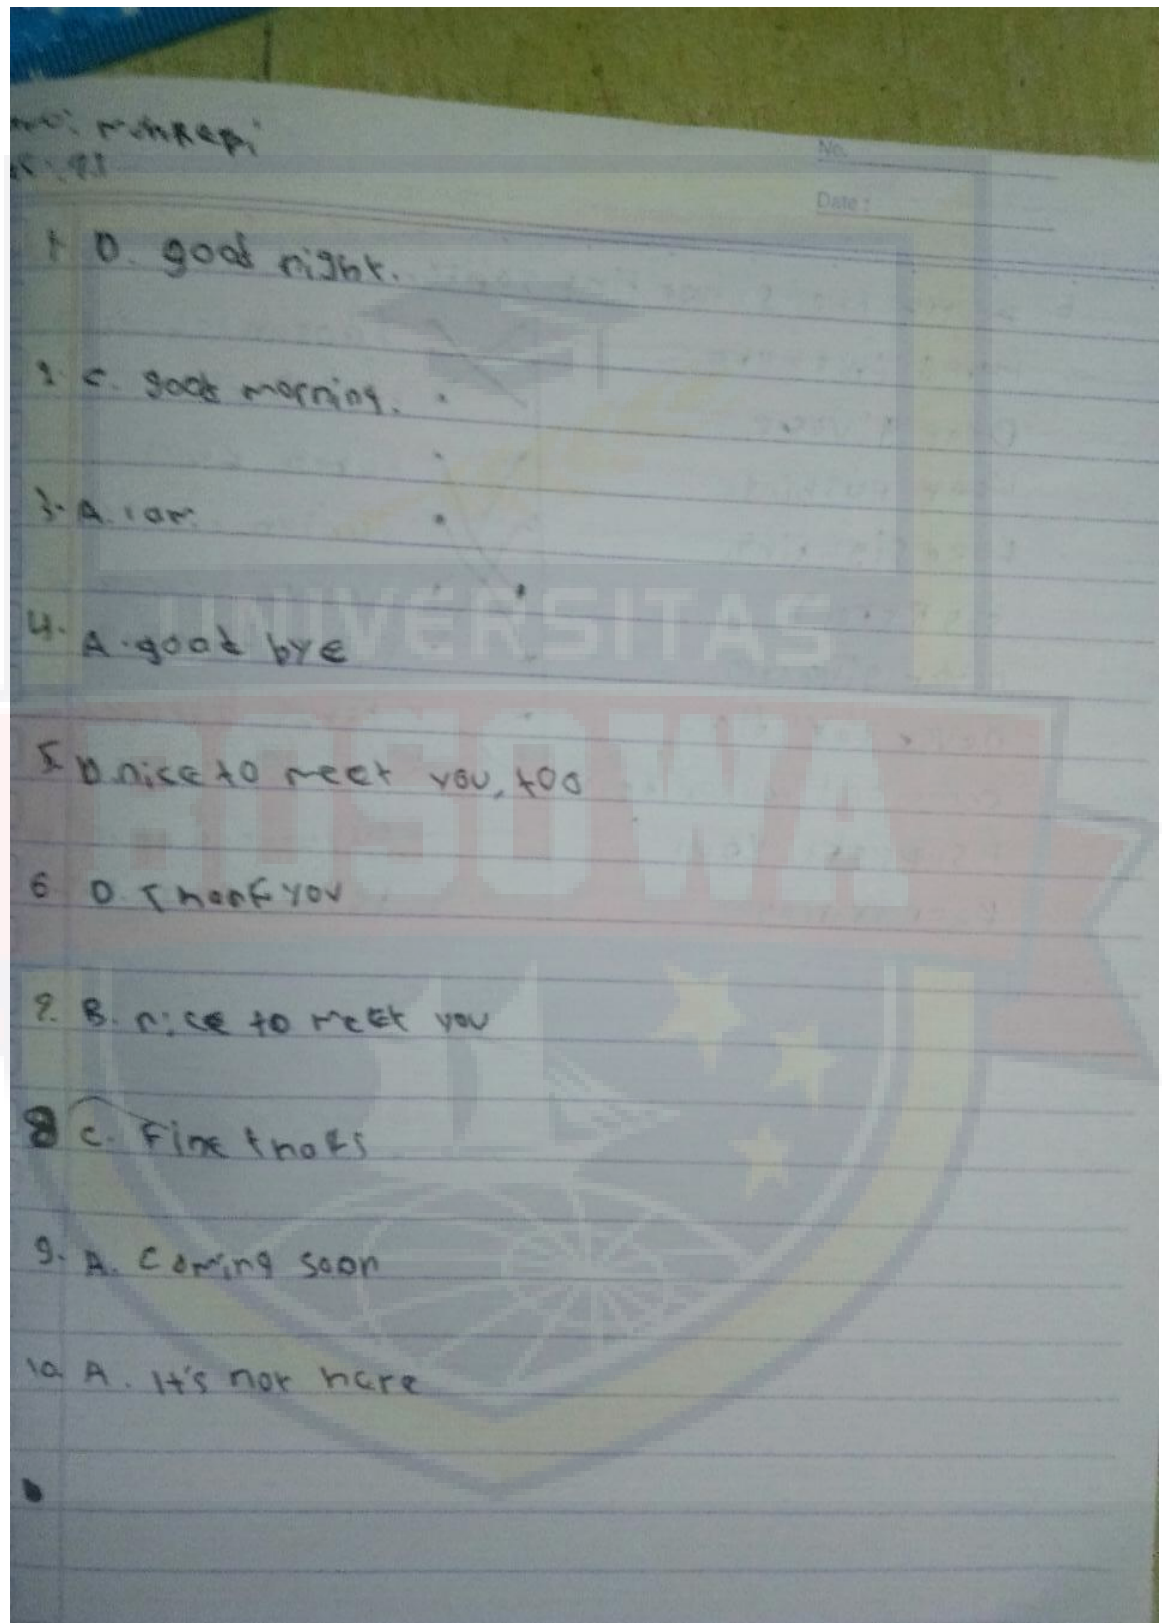 No.
Date :
1. D. good night.
2. C. good morning.
3. A. I am
4. A. good bye
5. D. nice to meet you, too
6 D. Thank you
7. B. nice to meet you
8 C. Fine
9. A. Coming soon
10. A. It's not here
UNIVERSITAS
BOSOWA